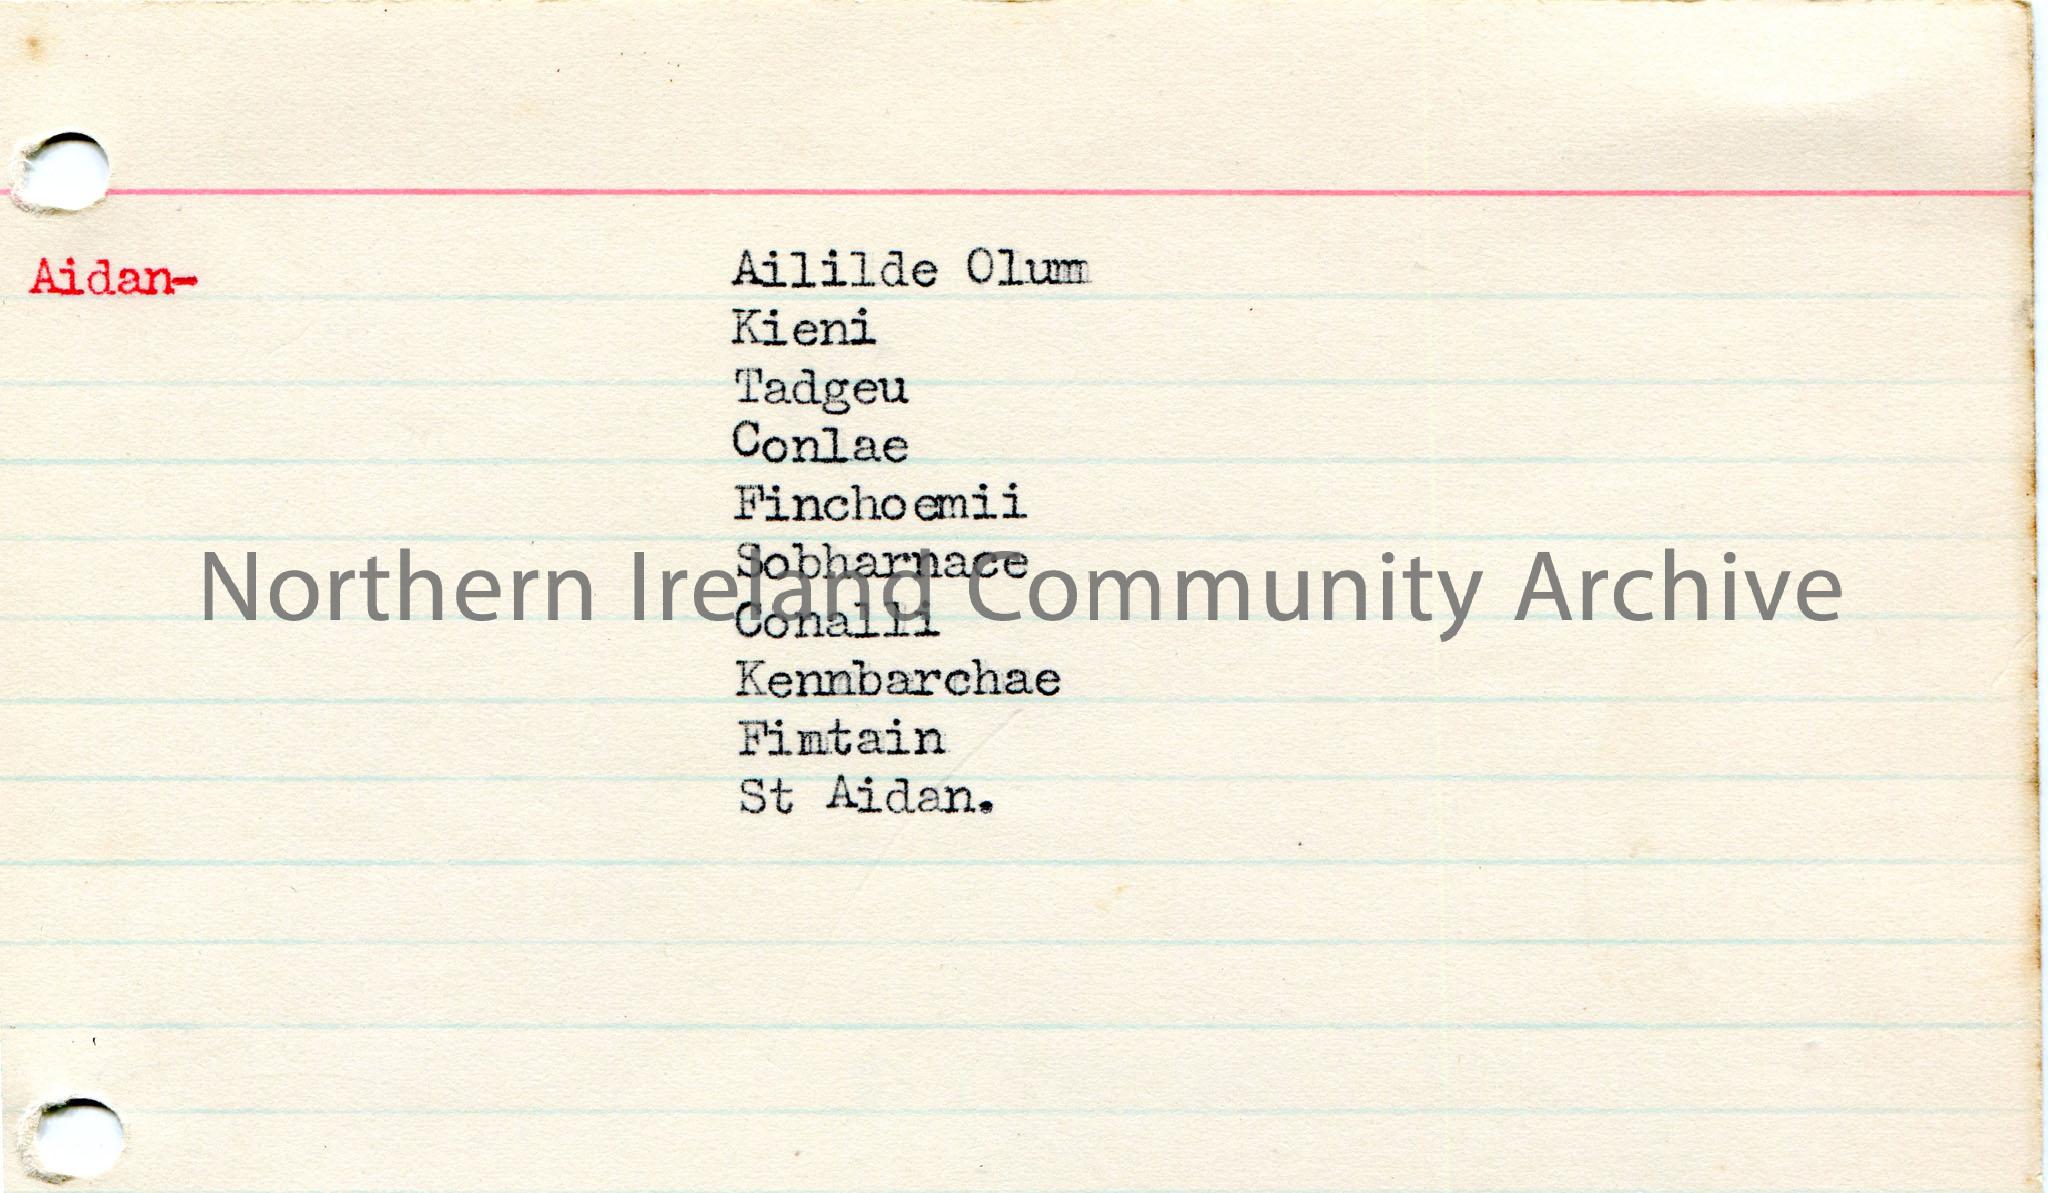 Aidan-
Aililde Olumm
Kieni
Tadgeu
Conlae
Finchoemii
Sobharnace
Northern Ireland Community Archive
Conalli
Kennbarchae
Fimtain
St Aidan.